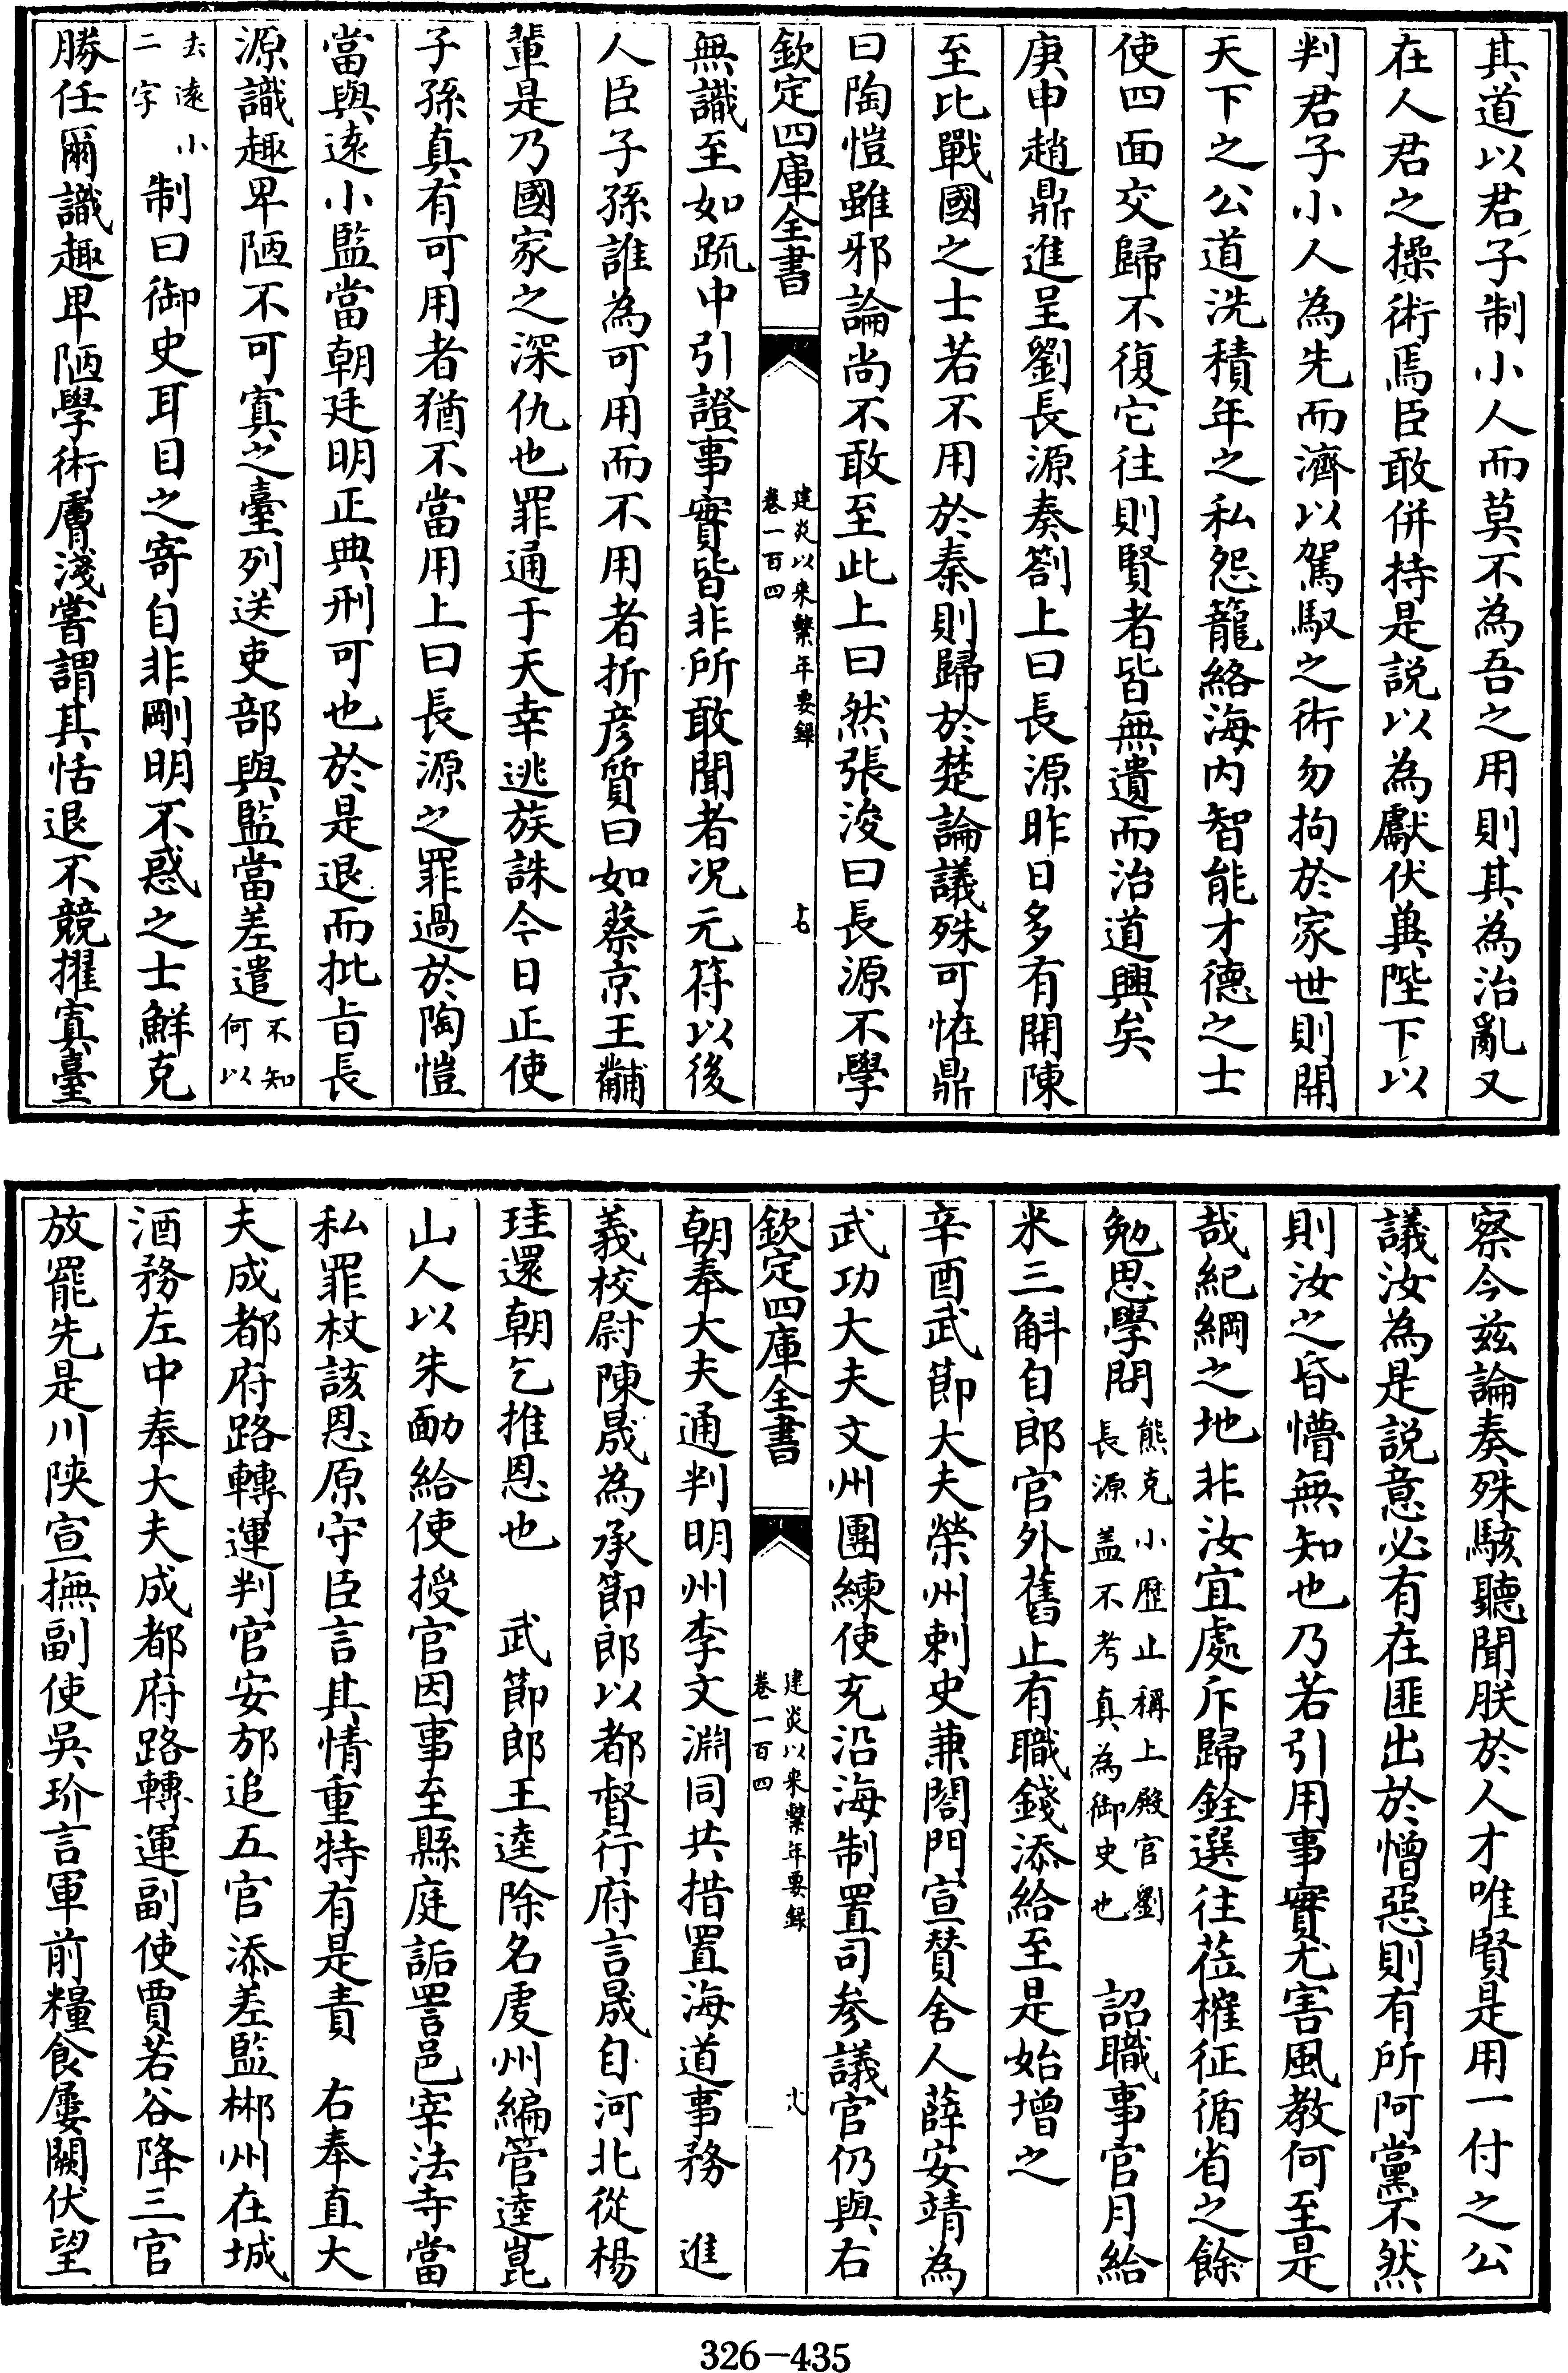 其道以君子制小人而莫不為吾之用則其為治亂又
在人君之操術焉臣敢併持是説以為獻伏兾陛下以
判君子小人為先而濟以駕馭之術勿拘於家世則開
天下之公道洗積年之私怨籠絡海内智能才德之士
使四面交歸不復它往則賢者皆無遺而治道興矣
庚申趙鼎進呈劉長源奏劄上曰長源昨日多有開陳
至比戰國之士若不用於秦則歸於楚論議殊可恠鼎
曰陶愷雖邪論尚不敢至此上曰然張浚曰長源不學
欽定四庫全書
建炎以来繫年要録
卷一百四
無識至如䟽中引證事實皆非所敢聞者况元符以後
人臣子孫誰為可用而不用者折彦質曰如蔡京王黼
輩是乃國家之深仇也罪通于天幸逃族誅今日正使
子孫真有可用者猶不當用上曰長源之罪過於陶愷
當與遠小監當朝廷明正典刑可也於是退而批㫖長
源識趣卑陋不可寘之臺列送吏部與監當差遣不知
何以
去遠小
二字
制曰御史耳目之寄自非剛明不惑之士鮮克
勝任爾識趣卑陋學術膚淺嘗謂其恬退不競擢寘臺
察今兹論奏殊駭聽聞朕於人才唯賢是用一付之公
議汝為是説意必有在匪出於憎惡則有所阿黨不然
則汝之昏懵無知也乃若引用事實尤害風教何至是
哉紀綱之地非汝宜處斥歸銓選往莅㩁征循省之餘
勉思學問熊克小歴止稱上殿官劉
長源盖不考真為御史也
詔職事官月給
米三斛自郎官外舊止有職錢添給至是始增之
辛酉武節大夫榮州刺史兼閤門宣賛舍人薛安靖為
武功大夫文州團練使充沿海制置司參議官仍與右
欽定四庫全書
建炎以来繫年要録
卷一百四
朝奉大夫通判明州李文淵同共措置海道事務　進
義校尉陳晟為承節郎以都督行府言晟自河北從楊
珪還朝乞推恩也　武節郎王逵除名䖍州編管逵崑
山人以朱勔給使授官因事至縣庭詬詈邑宰法寺當
私罪杖該恩原守臣言其情重特有是責　右奉直大
夫成都府路轉運判官安邡追五官添差監郴州在城
酒務左中奉大夫成都府路轉運副使賈若谷降三官
放罷先是川陝宣撫副使吳玠言軍前糧食屢闕伏望
326-435